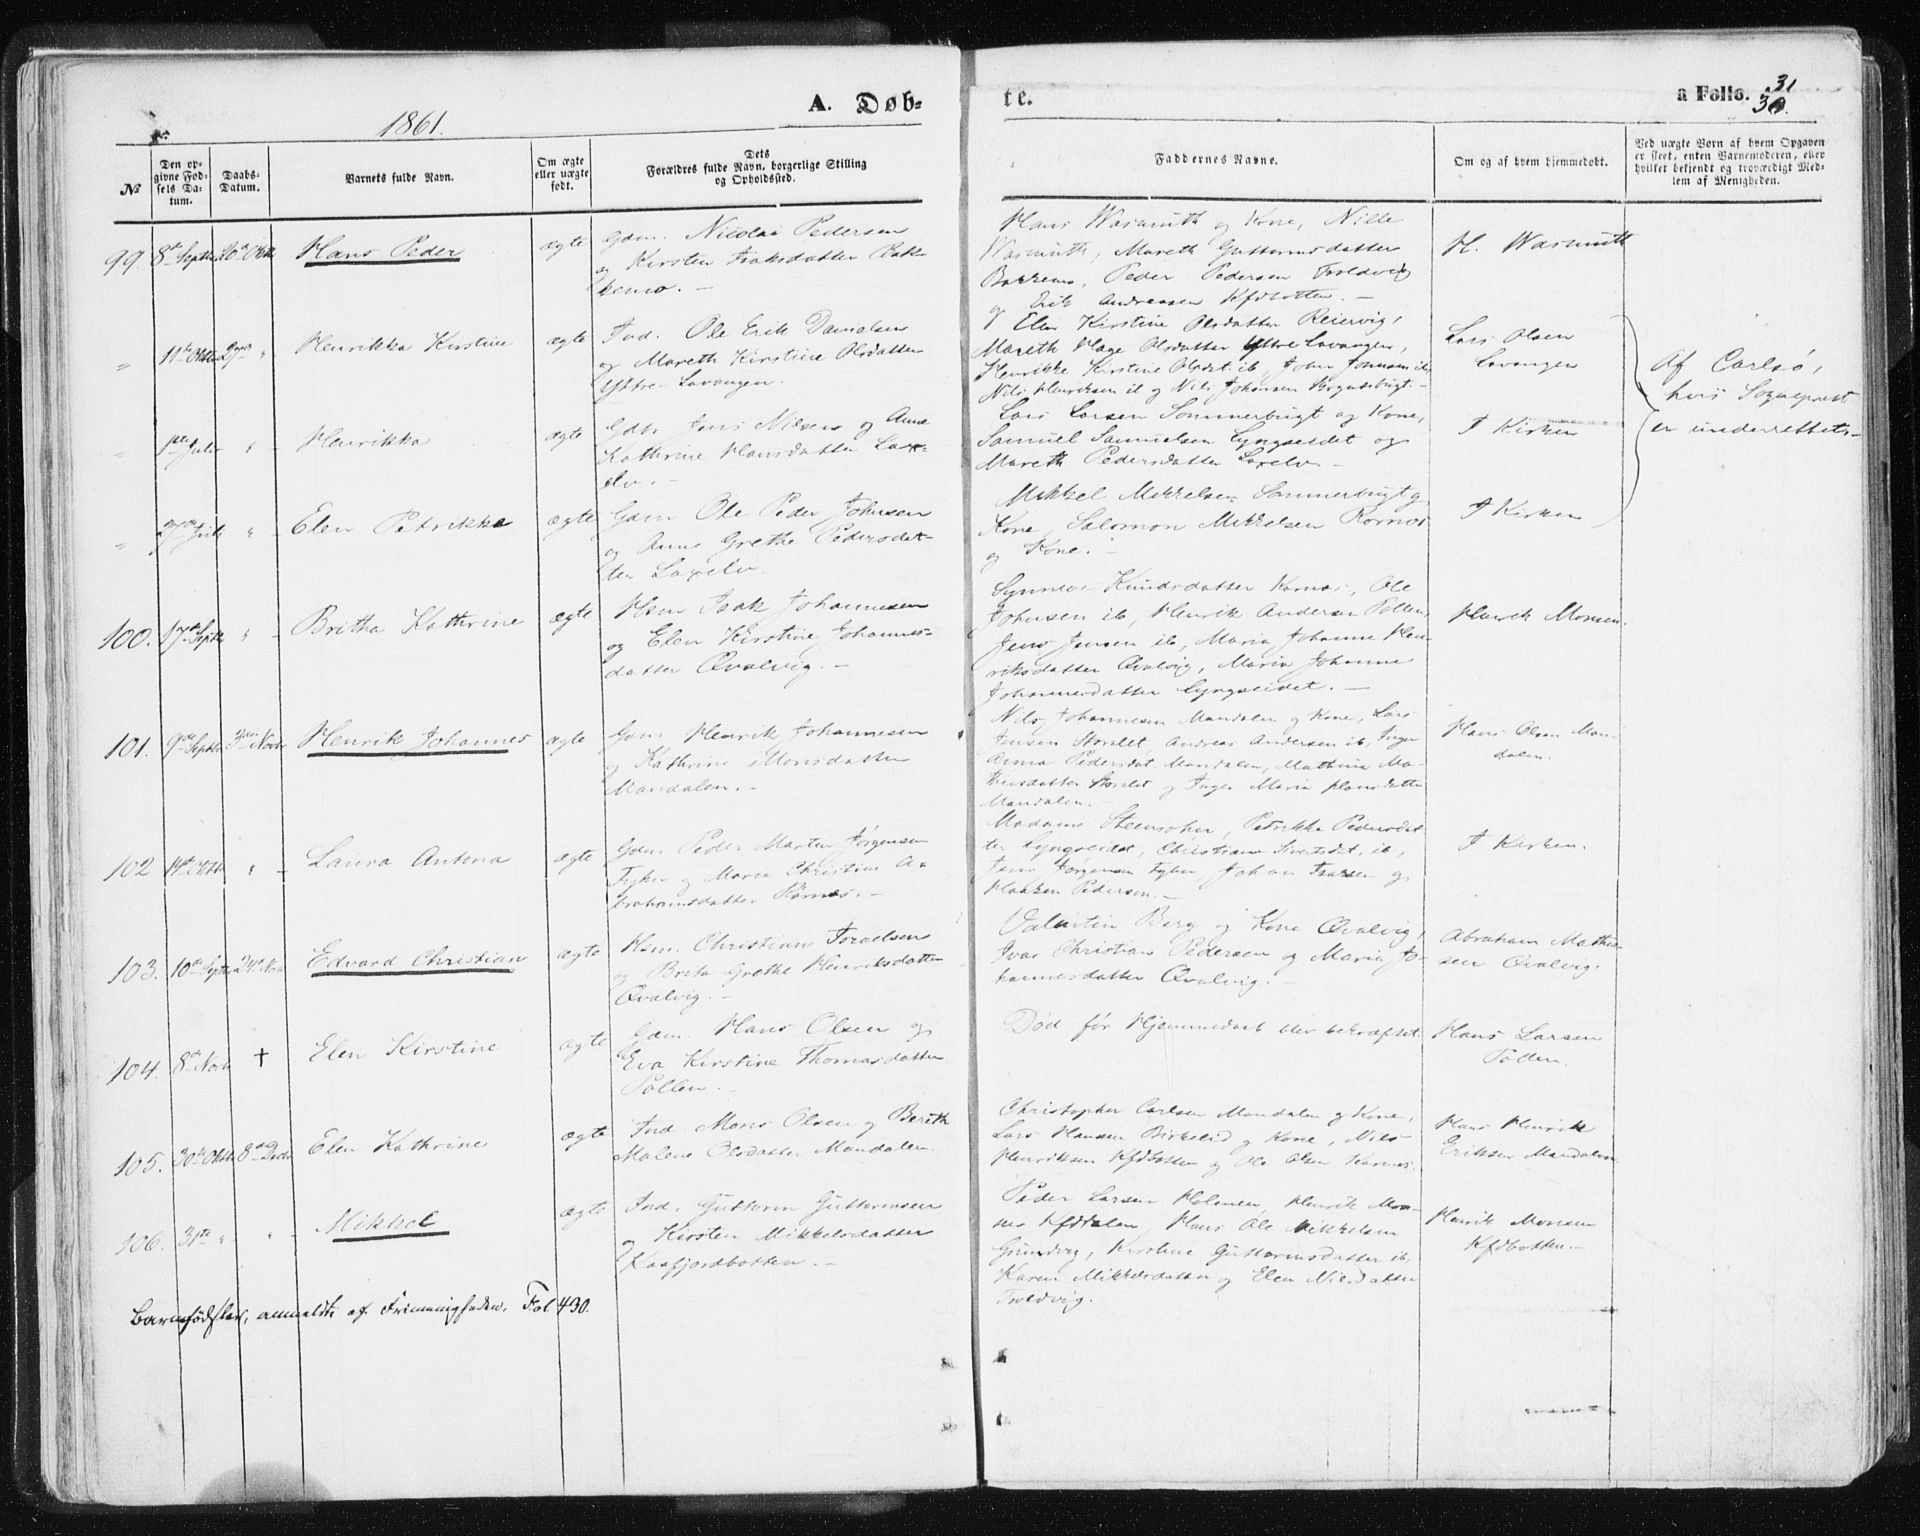 1861.
A. Døb-
te.
a Folio. 31
30.
№
Den op-
givne Fød-
sels Da-
tum.
Daabs-
Datum.
Barnets fulde Navn.
Om ægte
eller uægte
født.
Dets
Forældres fulde Navn, borgerlige Stilling
og Opholdssted.
Faddernes Navne.
Om og af hvem hjemmedøbt.
Ved uægte Børn af hvem Opgaven
er skeet, enten Barnemoderen, eller
hvilket bekjendt og troværdigt Med-
lem af Menigheden.
99. 8de Septbr 20de Oktbr Hans Peder ægte
Gdm. Nicolai Pedersen
og Kirsten Isaksdatter Bak-
kemo. –
Hans Wasmuth og Kone, Nille
Wasmuth, Mareth Guttormsdatter
Bakkemo, Peder Pedersen Troldvig
og Erik Andreassen Kfdbotten. –
H. Wasmuth
" 11te Oktbr 27de " Henrikka Kirstine ægte
Ind. Ole Erik Danielsen
og Mareth Kirstine Olsdatter
Yttre-Lavangen.
Elen Kirstine Olsdatter Reiervig,
Mareth Hage Olsdatter Yttre Lavangen,
Henrikke Kirstine Olsdat. ib, John Johnsen ib,
Nils Henriksen ib og Nils Johansen
Lars Olsen
Lavangen
Af Carlsø,
hvis Sogneprest
er underrettet.
" 1ste Juli " Henrikka ægte
Gdbr. Jens Nilsen og Anne
Kathrine Hansdatter Lax-
elv. –
Lars Larsen Sommerbugt og Kone,
Samuel Samuelsen Lyngseidet og
Mareth Pedersdatter Laxelv. –
I Kirken
" 27de Juli " Elen Petrikke ægte
Gdm Ole Peder Johnsen
og Anne Grethe Pedersdat-
ter Laxelv.
Mikkel Mikkelsen Sommerbugt og
Kone, Salomon Mikkelsen Rornæs
og Kone. –
I Kirken
100. 17de Septbr " Britha Kathrine ægte
Hsm Isak Johannesen
og Elen Kirstine Johannes-
datter Qvalvig. –
Synneve Knudsdatter Kornæs, Ole
Johnsen ib, Henrik Andersen Pollen,
Jens Jensen ib, Maria Johanne Hen-
riksdatter Qvalvig, Maria Johanne
Johannesdatter Lyngseidet. –
Henrik Monsen.
101. 9de Septbr 3die Novbr Henrik Johannes ægte
Gdm. Henrik Johannesen
og Kathrine Monsdatter
Mandalen. –
Nils Johannesen Mandalen og Kone, Lars
Jensen Storslet, Andreas Andersen ib, Inger
Anna Pedersdat Mandalen, Mathina Ma-
thisdatter Storslet og Inger Maria Hansdatter
Mandalen. –
Hans Olsen Man-
dalen.
102 14de Oktbr " Laura Antona ægte
Gdm. Peder Martin Jørgensen
og Maria Christine A-
brahamsdatter Kornæs. –
Madame Steensohn, Petrikke Pedersdat-
ter Lyngseidet, Christiane Sivertsdat. ib,
Jens Jørgensen Johan Isaksen og
Haaken Pedersen. –
I Kirken.
103. 10de Septbr 24de Novbr Edvard Christian ægte
Hsm. Christian Israelsen
og Brita Grethe Henriksdatter
Qvalvig. –
Valentin Berg og Kone Qvalvig,
Ivar Christian Pedersen og Maria Jo-
hannesdatter Qvalvig. –
Abraham Mathi-
sen Qvalvig.
104. 8de Novbr † Elen Kirstine ægte
Gdm. Hans Olsen og
Eva Kirstine Thomasdatter
Pollen. –
Død før Hjemmedaab blev bekræftet.
Hans Larsen
Pollen.
105. 30te Oktbr 8de Decbr Elen Kathrine ægte
Ind. Mons Olsen og Bereth
Malene Olsdatter Mandalen.
Christopher Carlsen Mandalen og Kone,
Lars Hansen Birkelid og Kone, Nils
Henriksen Kfdbotten og Ole Olsen Kornæs.
Hans Henrik
Eriksen Mandalen
106. 31te " " Mikkel ægte
Ind. Guttorm Guttormsen
og Kirsten Mikkelsdatter
Kaafjordbotten. –
Peder Larsen Holmen, Henrik Mon-
sen Kfddalen, Hans Ole Mikkelsen
Grundvig, Kirstine Guttormsdatter ib,
Karen Mikkelsdatter og Elen Nilsdatter
Troldvig.
Henrik Monsen
Kfdbotten. –
Barnefødsler, anmeldte af Frimenigheden, Fol. 430.